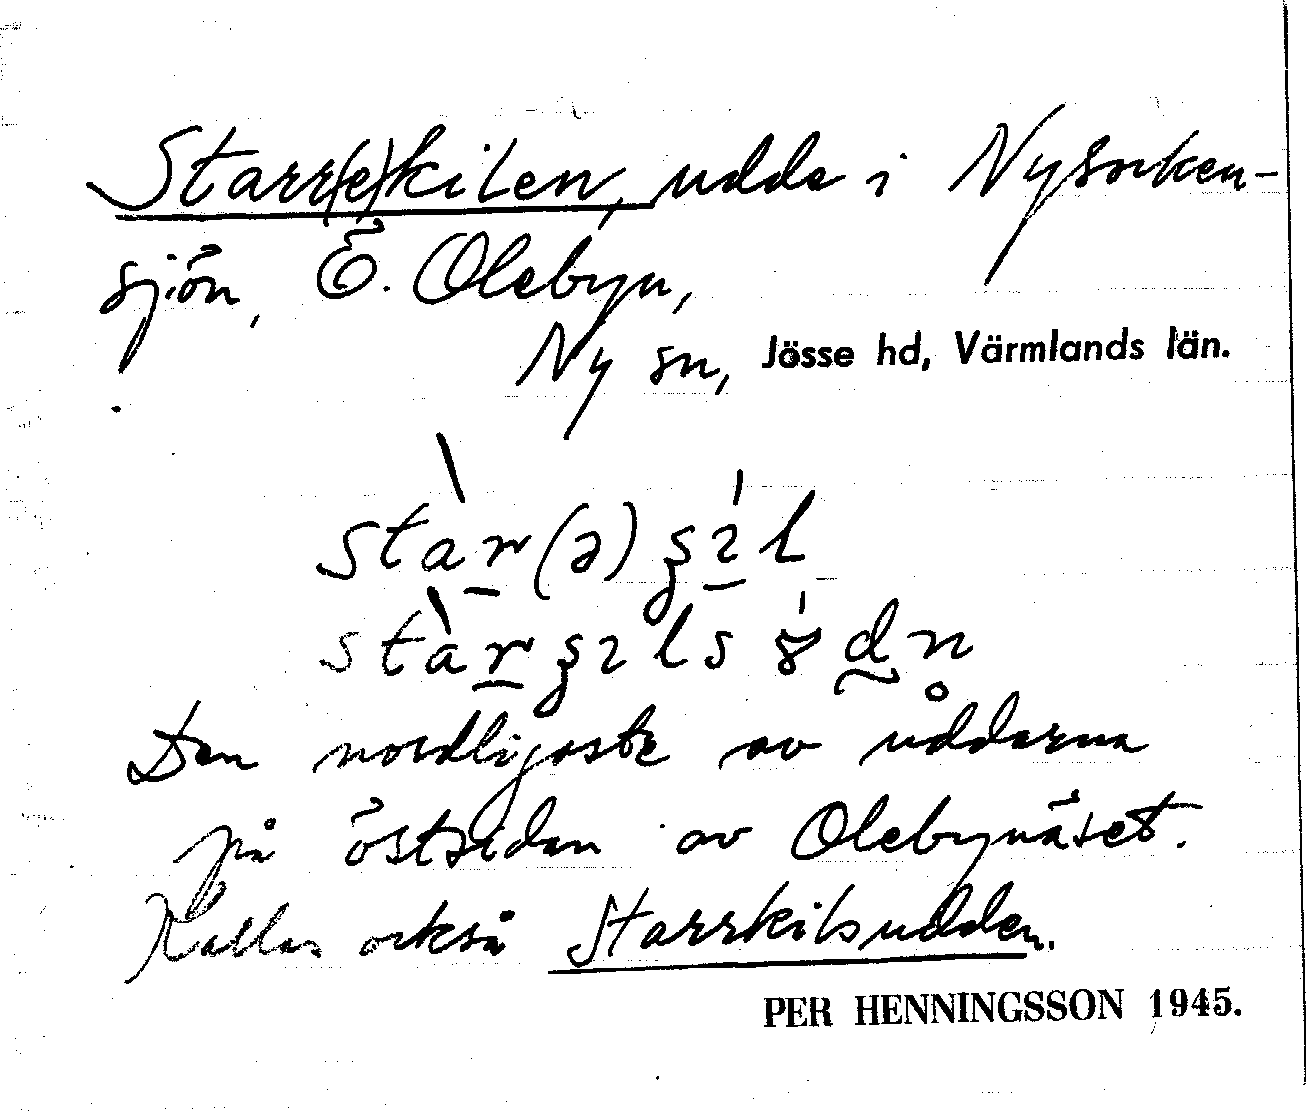 Starr(e)kilen, udde i Nysocken-
sjön, Ö. Olebyn,
Ny sn, Jösse hd, Värmlands län.
Den nordligaste av uddarna
på östsidan av Olebynäset.
Kallas också Starrkilsudden.
PER HENNINGSSON 1945.